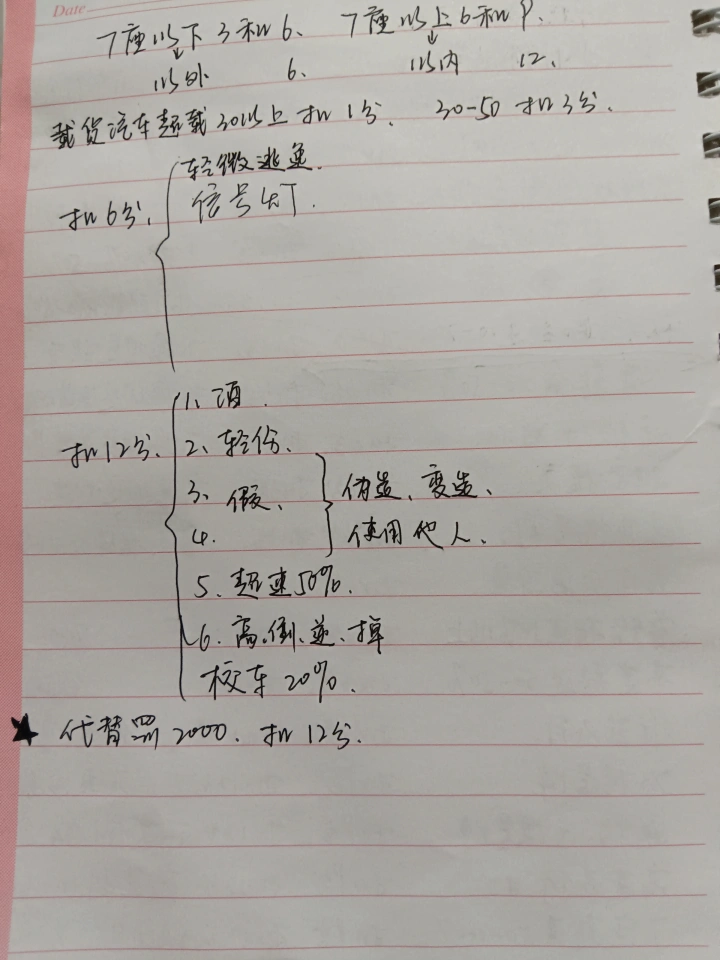 Date
7座以下 3和6、 7座以上 6和9.
以外 6、 以内 12.
载货汽车超载30以上 扣1分. 30-50 扣3分.
扣6分、
轻微逃逸.
信号灯.
扣12分、
1、酒.
2、轻伤.
3、假、
4.
伪造、变造、
使用他人、
5、超速50%.
6. 高、倒、逆、掉
校车20%.
★ 代替罚2000. 扣12分.